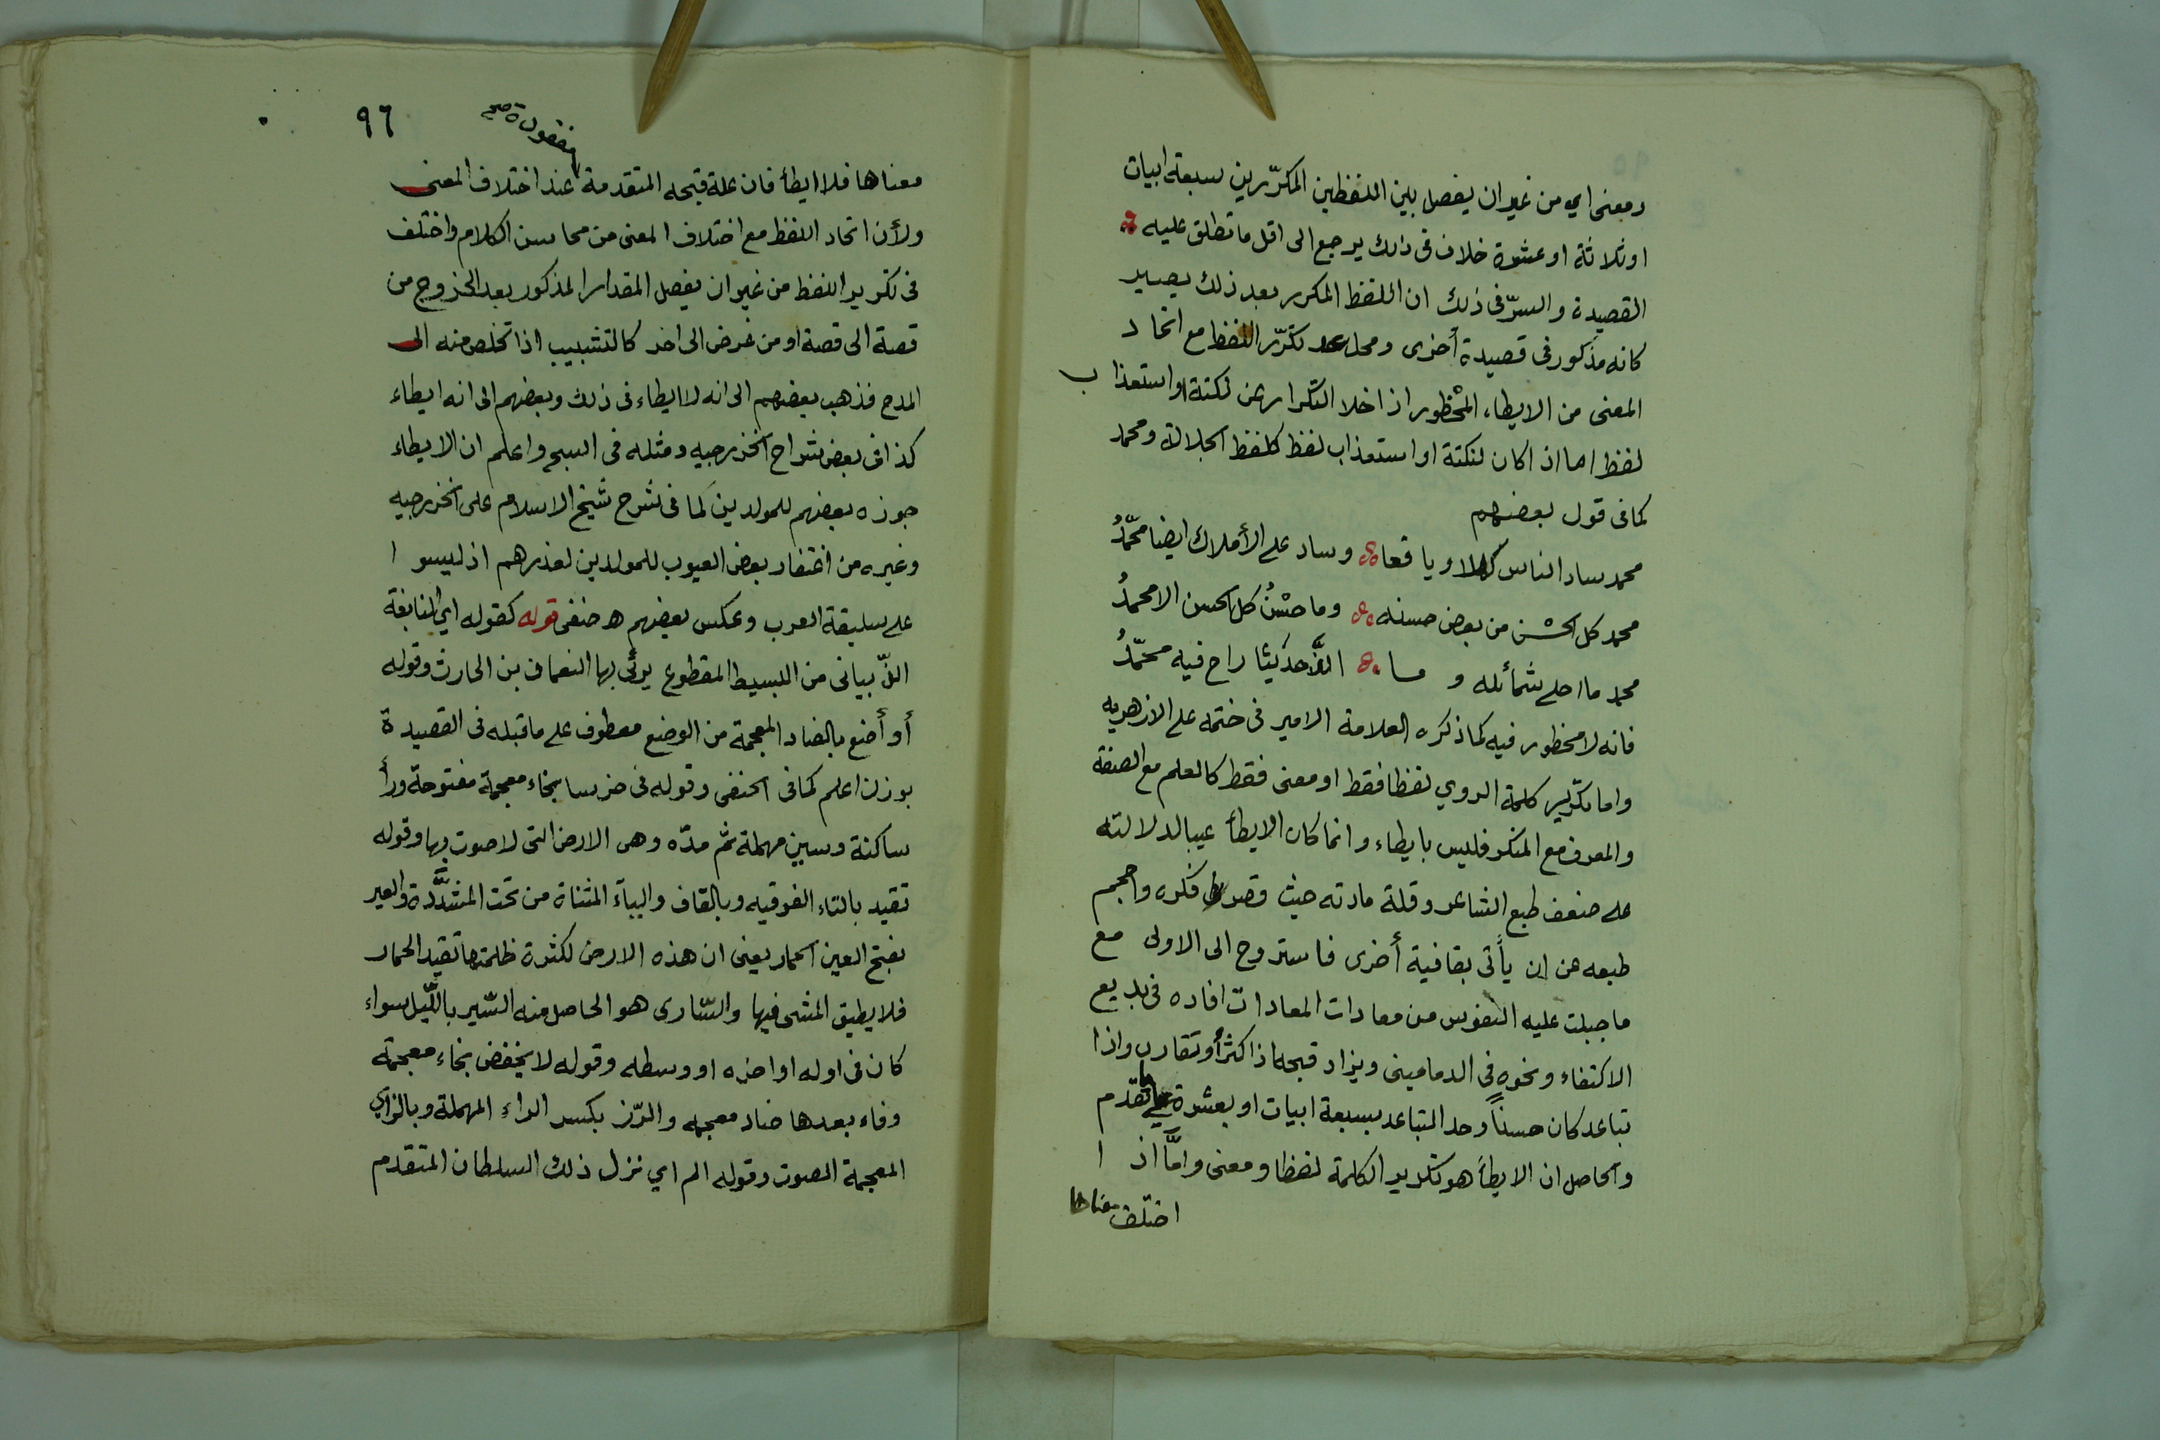 ومعنى اي من غير ان يفصل بين اللفظين المكرّرين سبعة ابيات
او ثلاثة او عشرة خلاف فى ذلك يرجع الى اقل ما تطلق عليه
القصيدة والسرّ فى ذلك ان اللفظ المكرر بعد ذلك يصير
كانه مذكور فى قصيدة أخرى ومحل عد تكرّر اللفظ مع اتحاد
المعنى من الايطاء المحظور اذا خلا التكرار عن نكتة او استعذاب
لفظ اما اذا كان لنكتة او استعذاب لفظ كلفظ الجلالة ومحمد
كما فى قول بعضهم
محمد ساد الناس كهلا ويافعا وساد على الأملاك ايضا محمّدُ
محمد كل الحسن من بعض حسنه وما حسْنُ كل الحسن الا محمدُ
محمد ما احلى شمائله وما الذّ حديثا راح فيه محمّدُ
فانه لا محظور فيه كما ذكره العلامة الامير فى ختمه على الازهريه
واما تكرّير كلمة الروي لفظا فقط او معنى فقط كالعلم مع الصفة
والمعرف مع المنكر فليس بايطاء وانما كان الايطأ عيبا لدلالته
على ضعف طبع الشاعر وقلة مادته حيث قصر فكره واحجم
طبعه عن ان يأتى بقافية أخرى فاستروح الى الاولى مع
ما جبلت عليه النفوس من معادات المعادات افاده فى بديع
الاكتفاء ونحوه فى الدمامينى ويزاد قبحه اذا كثر أو تقارب واذا
تباعد كان حسناً وحد التباعد بسبعة ابيات او بعشرة على ما تقدم
والحاصل ان الايطأ هو تكرير الكلمة لفظا ومعنى وامّا اذا
اختلف معناها
٩٦
مفقودة صح
معناها فلا ايطأ فان علة قبحه المتقدمة عند اختلاف المعنى
ولأن اتحاد اللفظ مع اختلاف المعنى من محاسن الكلام واختلف
فى تكرير اللفظ من غير ان يفصل المقدار المذكور بعد الخروج من
قصة الى قصة او من غرض الى اخر كالتشبيب اذا تخلص منه الى
المدح فذهب بعضهم الى انه لا ايطاء فى ذلك وبعضهم الى انه ايطاء
كذا فى بعض شراح الخزرجيه ومثله فى السبح واعلم ان الايطاء
جوزه بعضهم للمولدين كما فى شرح شيخ الاسلام على الخزرجيه
وغيره من اغتفار بعض العيوب للمولدين لعذرهم اذ ليسوا
على سليقة العرب وعكس بعضهم اه حنفى قوله كقوله اي النابغة
الذّبيانى من البسيط المقطوع يرثى بها النعمان بن الحارث وقوله
أو أضع بالضاد المعجمة من الوضع معطوف على ما قبله فى القصيدة
بوزن اعلم كما فى الحنفى وقوله فى خرسا بخاء معجمة مفتوحة ورأ
ساكنة وسين مهملة ثم مدّه وهى الارض التى لا صوت بها وقوله
تقيد بالتاء الفوقيه وبالقاف والياء المثناة من تحت المشدّدة والعير
بفتح العين الحمار يعنى ان هذه الارض لكثرة ظلمتها تقيد الحمار
فلا يطيق المشى فيها والسّارى هو الحاصل منه السّير بالّليل سواء
كان فى اوله او اخره او وسطه وقوله لا يخفض بخاء معجمة
وفاء بعدها ضاد معجمه والرّز بكسر الراء المهملة وبالزاي
المعجمة الصوت وقوله الم اي نزل ذلك السلطان المتقدم